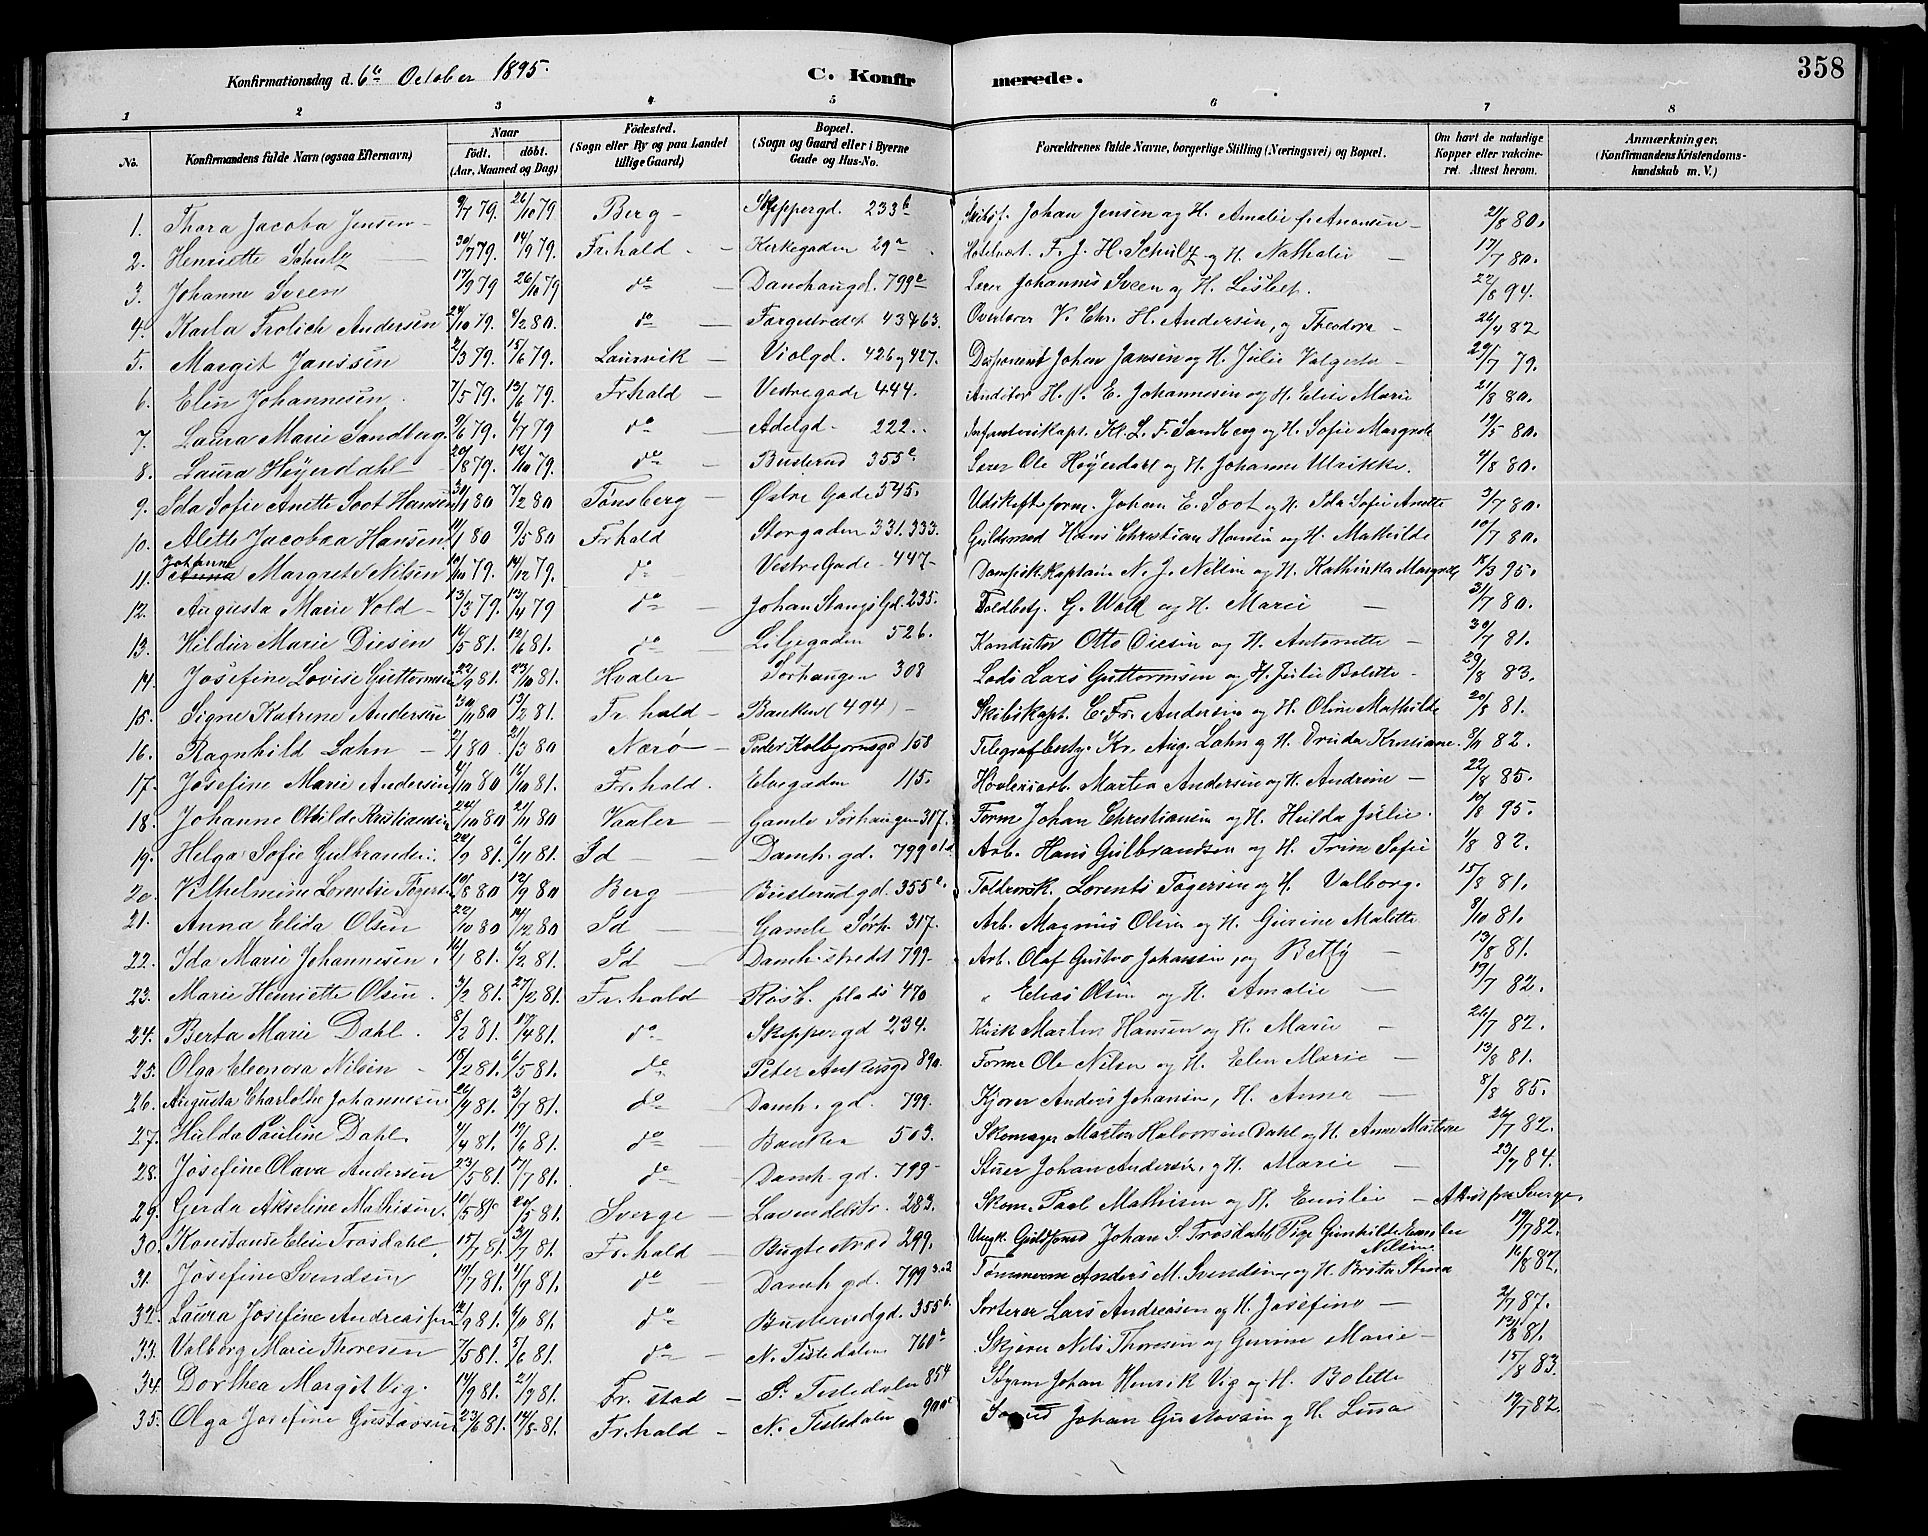 358
Konfirmationsdag d. 6te October 1895.
C. Konfirmerede.
1 2 3 4 5 6 7 8
No. Konfirmandens fulde Navn (ogsaa Efternavn) Naar Födt. döbt. (Aar, Maaned og Dag) Födested. (Sogn eller By og paa Landet tillige Gaard) Bopæl. (Sogn og Gaard eller i Byerne Gade og Hus-No. Forældrenes fulde Navne, borgerlige Stilling (Næringsvei) og Bopæl. Om havt de naturlige Kopper eller vakcineret. Attest herom. Anmærkninger. (Konfirmandens Kristendomskundskab m. V.)
1. Thora Jacoba Jensen 9/7 79. 26/10 79 Berg Skippergd. 233b Johan Jensen og H. Amalie f. Anonsen 2/8 80.
2. Henriette Schulz 30/7 79. 14/9 79 Fr.hald Kirkegaden 29a F. J. H. Schulz og H. Nathalie 17/7 80.
3. Johanne Sveen 17/9 79 26/10 79 do Damhaugd. 799c Lærer Johannes Sveen og H. Lisbet. 22/8 94.
4. Karla Frolich Andersen 24/10 79. 6/2 80. do Fargestrædet 43463. Overlærer V. Chr. H. Andersen, og Theodora 26/4 82
5. Margit Janssen 2/3 79. 15/6 79. Laurvik Violgd. 426 og 427. Disponent Johan Jansen og H. Julie Valgerda 29/7 79.
6. Elen Johannesen 7/5 79. 13/6 79. Fr.hald Vestregade 444. Auditør H. E. Johannesen og H. Elise Marie 21/8 80.
7. Laura Marie Sandberg 9/6 79. 6/7 79 do Adelgd. 222. Infanterikapt. Kl. L. F. Sandberg og H. Sofie Margrete 19/5 80.
8. Laura Høyerdahl 20/8 79. 12/10 79. do Busterud 355a Lærer Ole Høyerdahl og H. Johanne Ulrikke. 4/8 80.
9. Ida Sofie Anette Soot Hansen 30/1 80 7/2 80 Tønsberg Østre Gade 545. Udskiftform. Johan E. Soot og H. Ida Sofie Anette 3/7 80.
10. Alette Jacobea Hansen 11/1 80 9/5 80 Fr.hald Storgaden 331.333. Guldsmed Hans Christian Hansen og H. Mathilde 10/7 80.
11. Johanne Margrete Nilsen 10/10 79. 14/12 79. do Vestre Gade 447 Dampsk. Kaptain N. J. Nilsen og H. Kathinka Margrete 18/3 95.
12. Augusta Marie Vold 13/3 79. 13/4 79 do Johan Stangs Gd. 235. Toldbetj. G. Wold og H. Marie 31/7 80.
13. Hildur Marie Diesen 16/5 81. 12/6 81. do Liljegaden 526. Konduktør Otto Diesen og H. Antonette 30/7 81.
14. Josefine Lovise Guttormsen 22/9 81. 23/10 81. Hvaler Sørhaugen 308 Lods Lars Guttormsen og H. Julie Bolette 29/8 83.
15. Signe Katrine Andersen 30/11 80 13/2 81. Fr.hald Banken (494) Skibskapt. C. Fr. Andersen og H. Oline Mathilde 20/8 81.
16. Ragnhild Lahn 2/1 80. 21/3 80 Nærø Peder Kolbjørnsgd 158 Telegrafbesty. Kr. Aug. Lahn og H. Druda Kristiane. 3/11 82.
17. Josefine Marie Andersen 4/10 80 16/10 81. Fr.hald. Elvegaden 115. Høvleriarb. Martin Andersen og H. Andrine 22/8 85.
18. Johanne Othilde Kristiansen 22/10 80 21/11 80 Vaaler Gamle Sørhaugen 317. Form. Johan Christiansen og H. Hulda Julie. 10/8 95.
19. Helga Sofie Gulbrandsen 24/9 81. 6/11 81. Id Damh. gd. 799 Arb. Hans Gulbrandsen og H. Trine Sofie 1/8 82.
20. Vilhelmine Lorentse Fagersen 10/8 80 12/9 80 Berg Busterud gd. 355a. Toldrorsk. Lorents Fagersen og H. Valborg. 15/8 81.
21. Anna Elida Olsen 22/10 80 14/12 80 Id Gamle Sørh. 317. Arb. Magnus Olsen og H. Gurine Malette 8/10 81.
22. Ida Marie Johannesen. 14/1 81. 6/2 81. Id Damh. strædet 799 Arb. Olaf Gustav Johansen, og Betty 13/8 81.
23. Marie Henriette Olsen 3/2 81. 27/2 81. Fr.hald Røsb. plads 470 " Elias Olsen og H. Amalie 19/7 82.
24. Berta Marie Dahl. 8/2 81. 17/4 81. do Skippergd 234. Kusk Martin Hansen og H. Marie 26/7 82.
25. Olga Eleonora Nilsen 18/2 81. 6/5 81. do Peter Ankersgd 89a. Former Ole Nilsen og H. Elen Marie 13/8 81.
26. Augusta Charlotte Johannesen. 26/4 81. 3/7 81. do Damh. gd. 799. Kjører Anders Johansen, H. Anne 8/8 85.
27. Hulda Pauline Dahl. 4/4 81. 19/6 81. do Banken 503. Skomager Martin Halvorsen Dahl og H. Anne Martine 26/7 82.
28. Josefine Olava Andersen 23/5 81. 17/7 81. do Damh. gd. 799 Stuer Johan Andersen, og H. Marie 23/7 84.
29. Gerda Akseline Mathisen. 10/5 81 20/5 81. Sverge Lavendelstr. 283. Skom. Paul Mathisen og H. Emilie Attest fra Sverge.
30. Konstanse Elise Trosdahl 15/7 81. 31/7 81. Fr.hald Bugtestræd 299. Ungk. Guldsmed Johan S. Trosdahl, Pige Gunhilde Emilie Nilsen 19/7 82.
31. Josefine Svendsen 19/7 81. 4/9 81. do Damh gd. 799 Tømmerm. Anders M. Svendsen, og H. Brita Stina 16/8 82.
32. Laura Josefine Andreassen 12/9 81. 6/10 81. do Busterudgd. 355b. Sorterer Lars Andreasen og H. Josefine 2/7 87.
33. Valborg Marie Thoresen 7/5 81. 5/6 81. do N. Tistedalen 760a Skjærer Nils Thoresen og Gurine Marie 13/8 81.
34. Dorthea Margit Vig. 14/9 81. 21/9 81. Fr.stad S. Tistedalen 854 Styrm. Johan Henrik Vig og H. Bolette 15/8 83.
35. Olga Josefine Gustavsen 23/6 81. 14/8 81. Fr.hald N. Tistedalen 900c Johan Gustavsen og H. Lina 19/7 82.